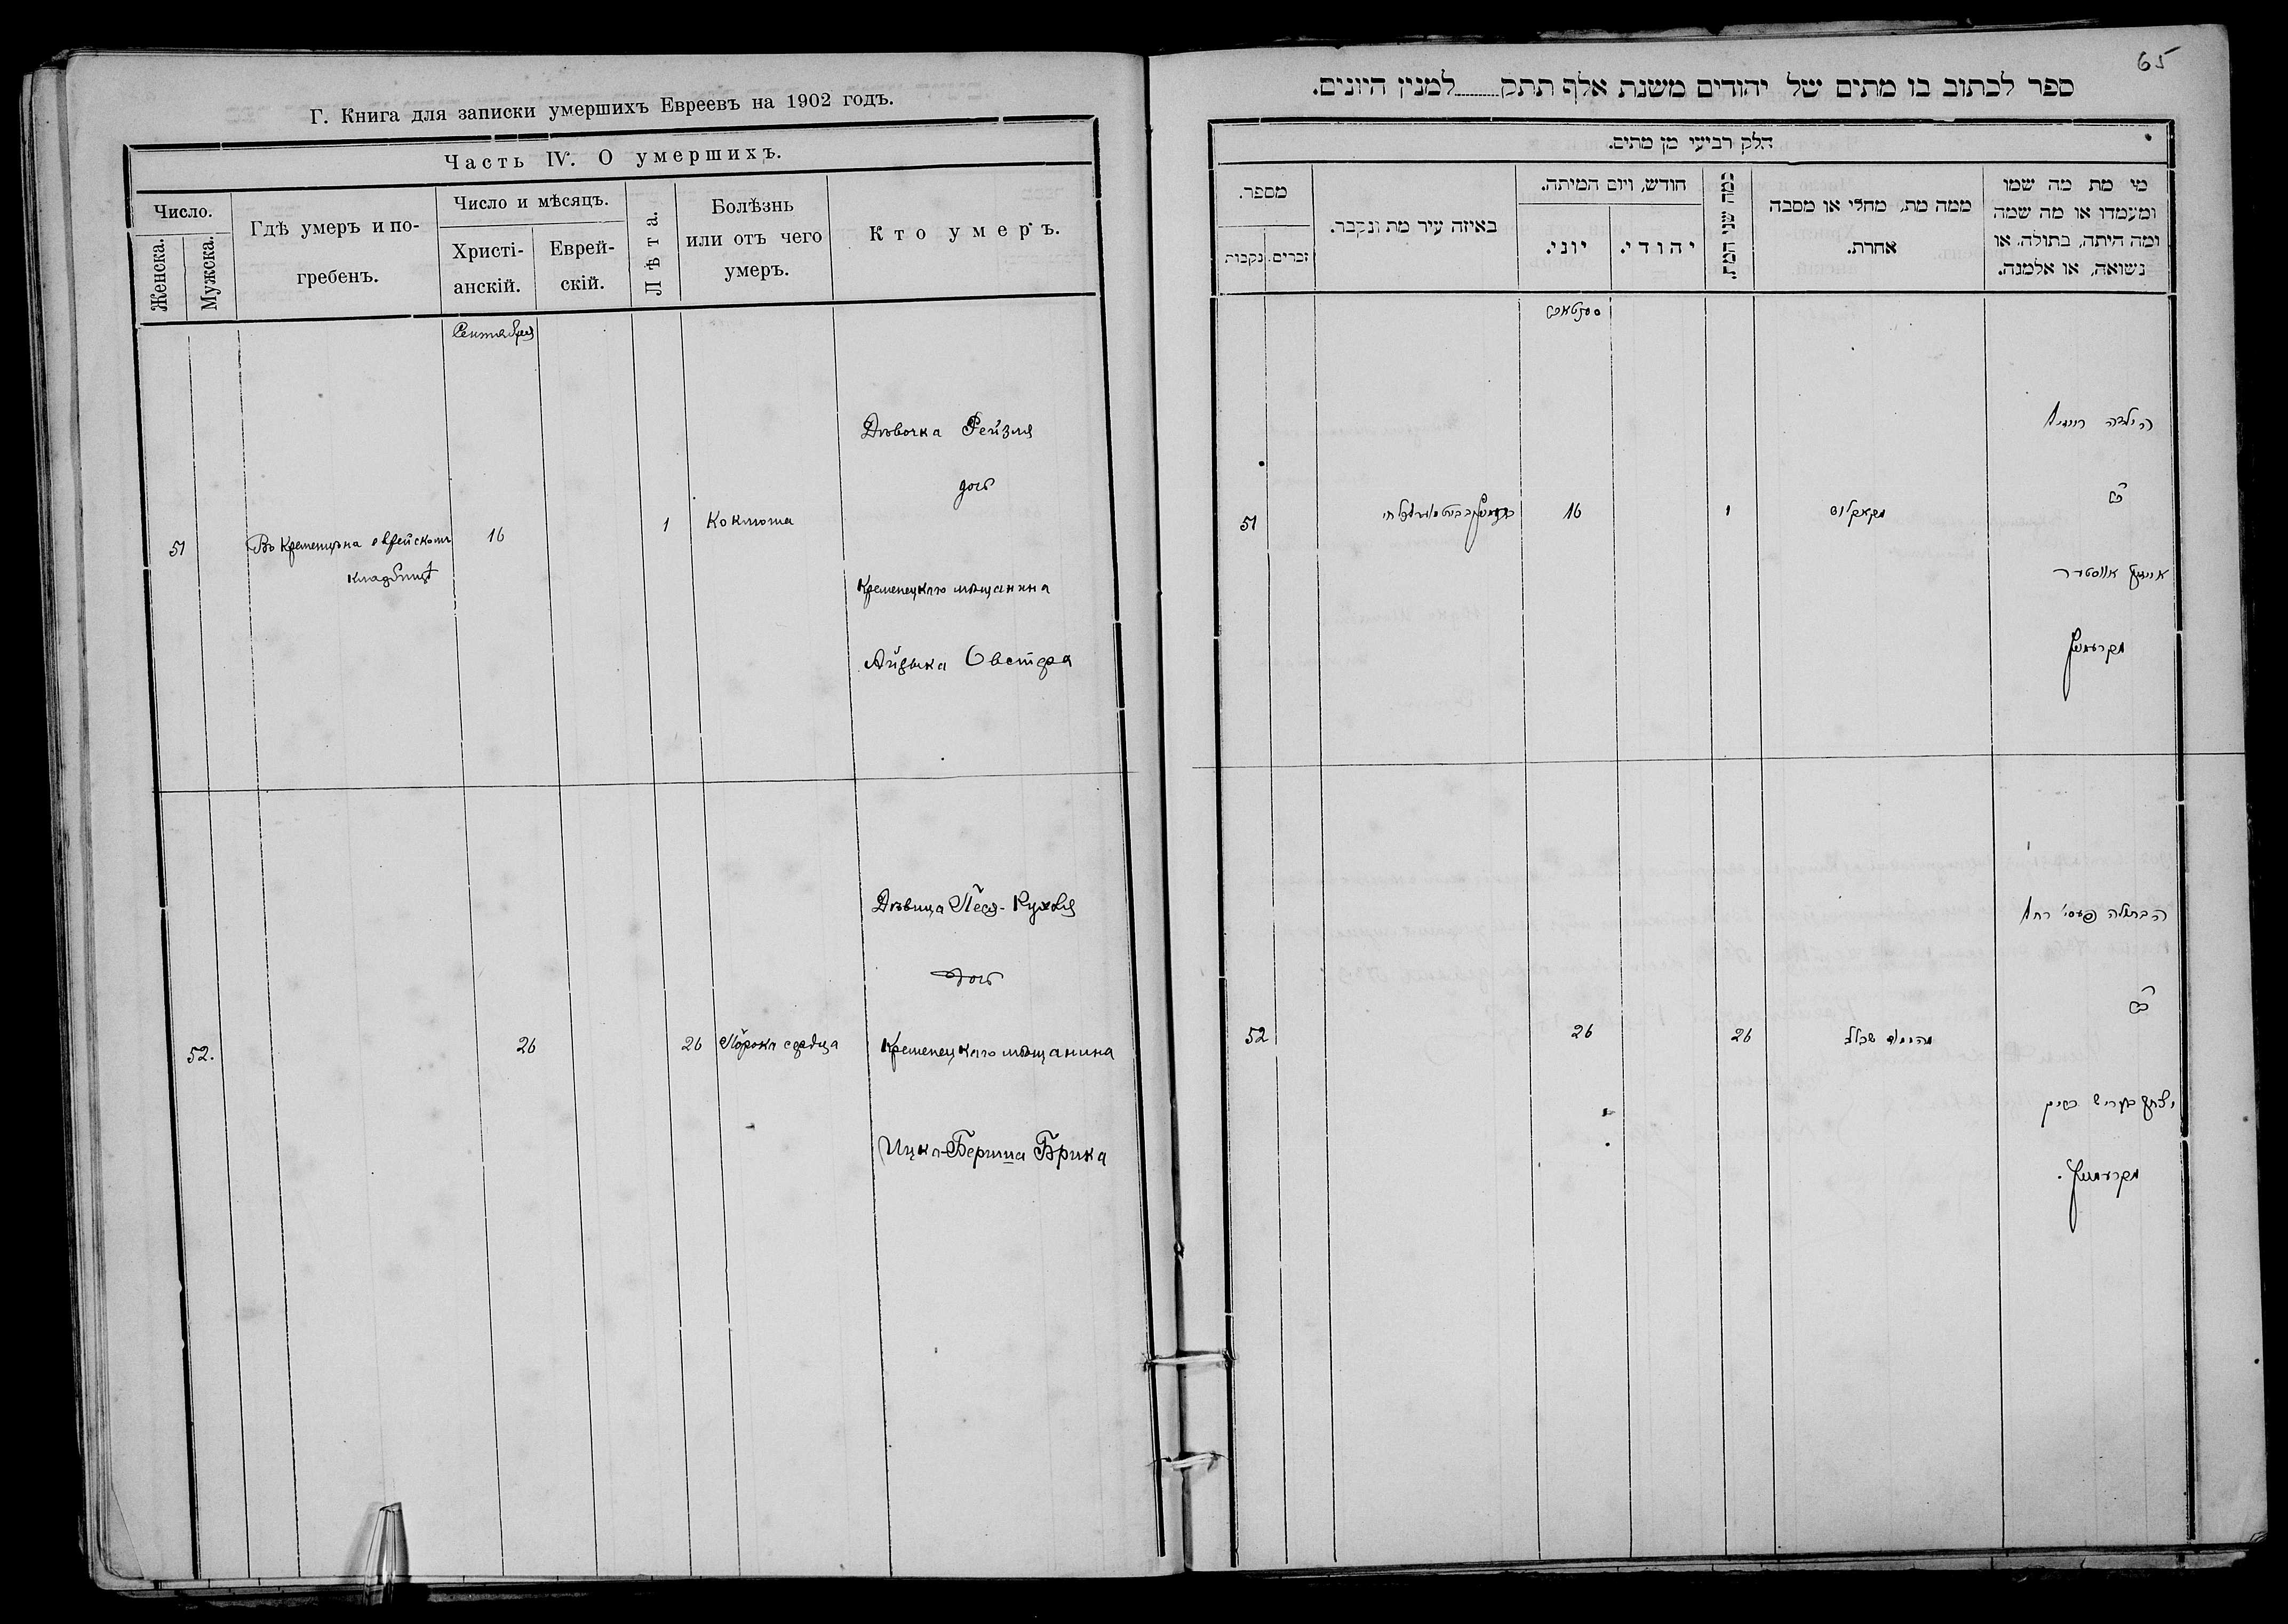 Г. Книга для записки умершихъ Евреевъ на 1902 годъ.
Часть IV. О умершихъ.
Число.
Женска.
Мужска.
Гдѣ умеръ и по-
гребенъ.
Число и мѣсяцъ.
Христі-
анскій.
Еврей-
скій.
Лѣта.
Болѣзнь
или отъ чего
умеръ.
Кто умеръ.
Сентября
51
Въ Кременцѣ на еврейскомъ
кладбищѣ
16
1
Коклюша
Дѣвочка Рейзля
дочь
Кременецкаго мѣщанина
Айзыка Овстдра
52.
26
26
Порока сердца
Дѣвица Песя-Рухля
дочь
Кременецкаго мѣщанина
Ицка-Бериша Брика
65
ספר לכתוב בו מתים של יהודים משנת אלף תתק למנין היונים.
חלק רביעי מן מתים.
מספר.
נקבות
זכרים.
באיזה עיר מת ונקבר.
חודש, ויום המיתה.
יוני.
יהודי.
כמה שני המת.
ממה מת, מחלי או מסבה
אחרת.
מי מת מה שמו
ומעמדו או מה שמה
ומה היתה, בתולה, או
נשואה, או אלמנה.
51
16
1
הילדה רייזיל
בת
אייזיק אווסטדר
מקרעמעניץ
52
26
26
הבתולה פעסי רחל
בת
יצחק בעריש בריק
מקרעמעניץ.